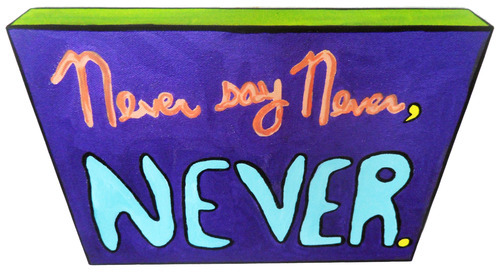 Never say Never,
NEVER.